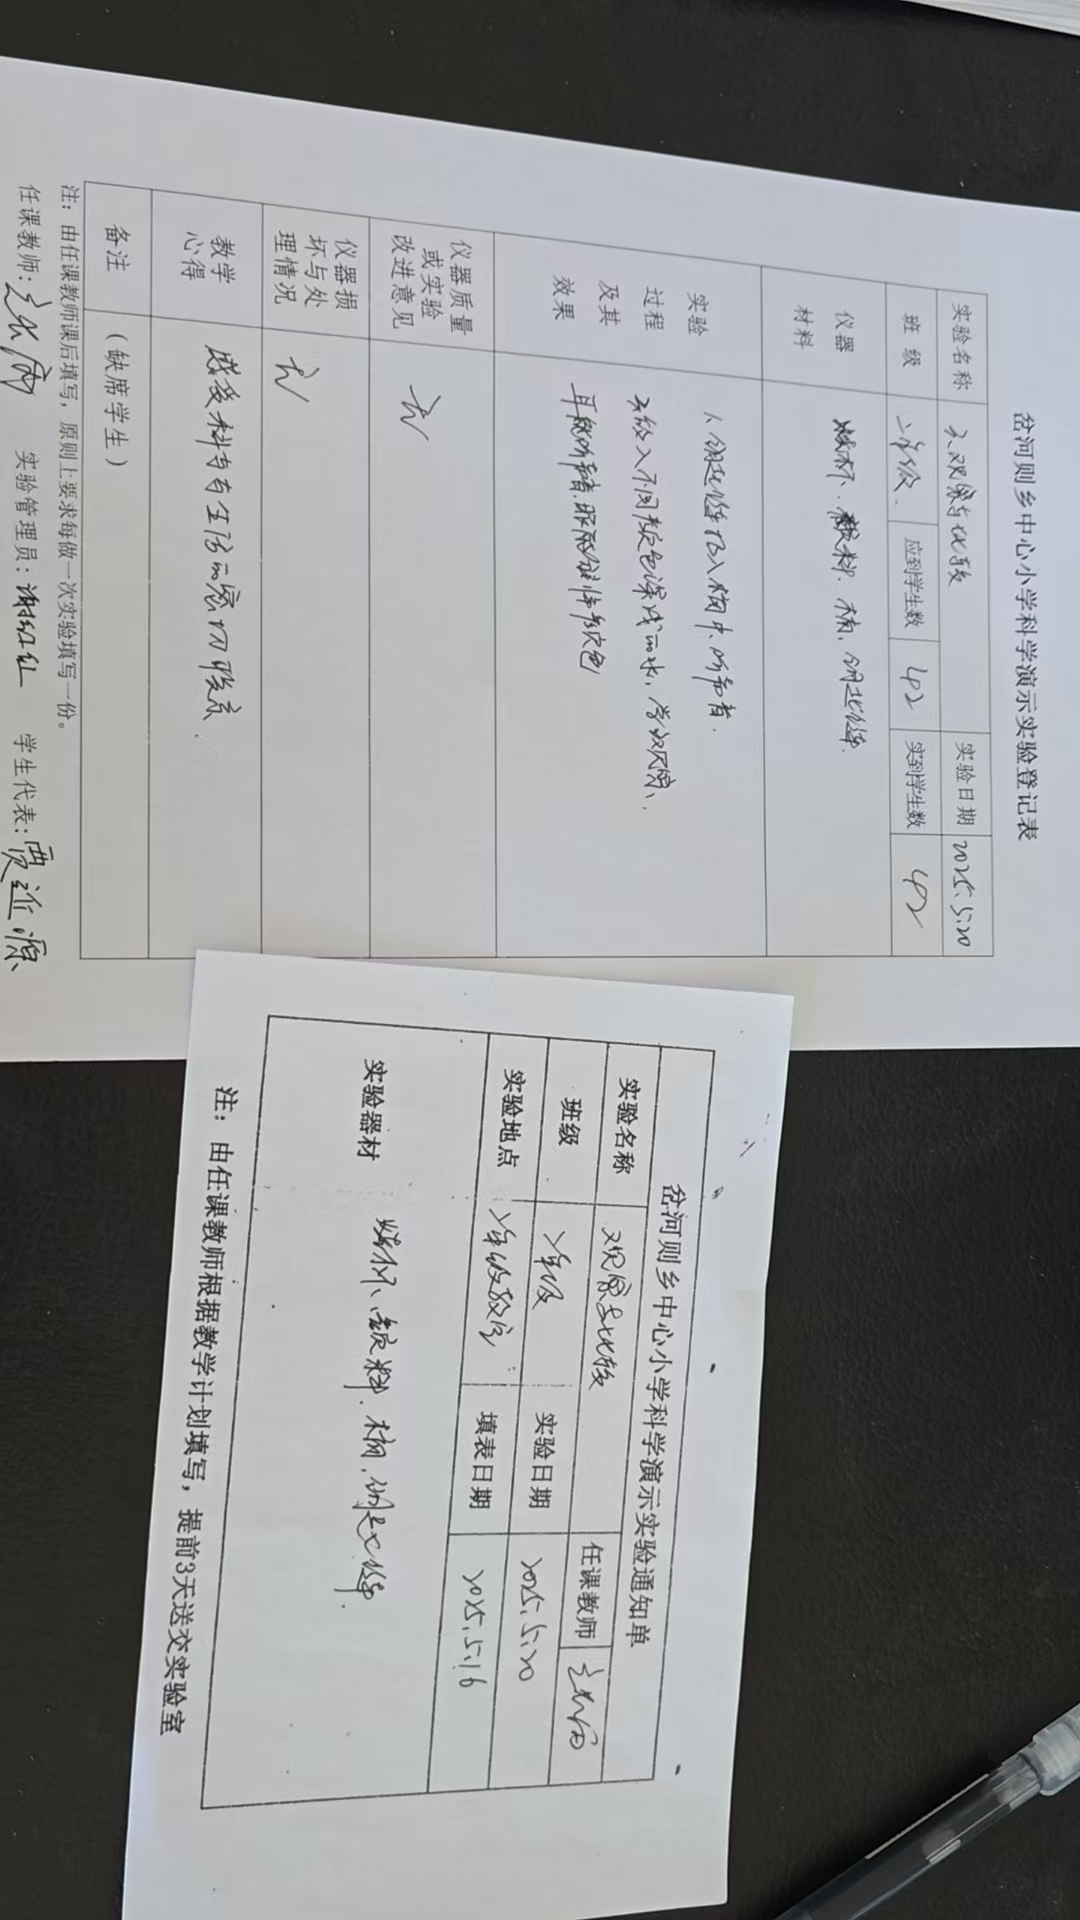 岔河则乡中心小学科学演示实验登记表
实验名称 3、观察与比较 实验日期 2025.5.20
班级 二年级 应到学生数 42 实到学生数 42
仪器
材料
烧杯、颜料、橘、钥匙链
实验
过程
及其
效果
1、钥匙链投入橘中,听声音.
耳能听声音,眼睛能分辨颜色
仪器质量
或实验
改进意见
无
仪器损
坏与处
理情况
无
教学
心得
感受科学与生活的密切联系.
备注 (缺席学生)
注:由任课教师课后填写,原则上要求每做一次实验填写一份。
任课教师: 实验管理员:谢红红 学生代表:贾近源
岔河则乡中心小学科学演示实验通知单
实验名称 观察与比较 任课教师
班级 2年级 实验日期 2025.5.20
实验地点 2年级教室 填表日期 2025.5.16
实验器材 烧杯、颜料、橘、钥匙链.
注:由任课教师根据教学计划填写,提前3天送交实验室